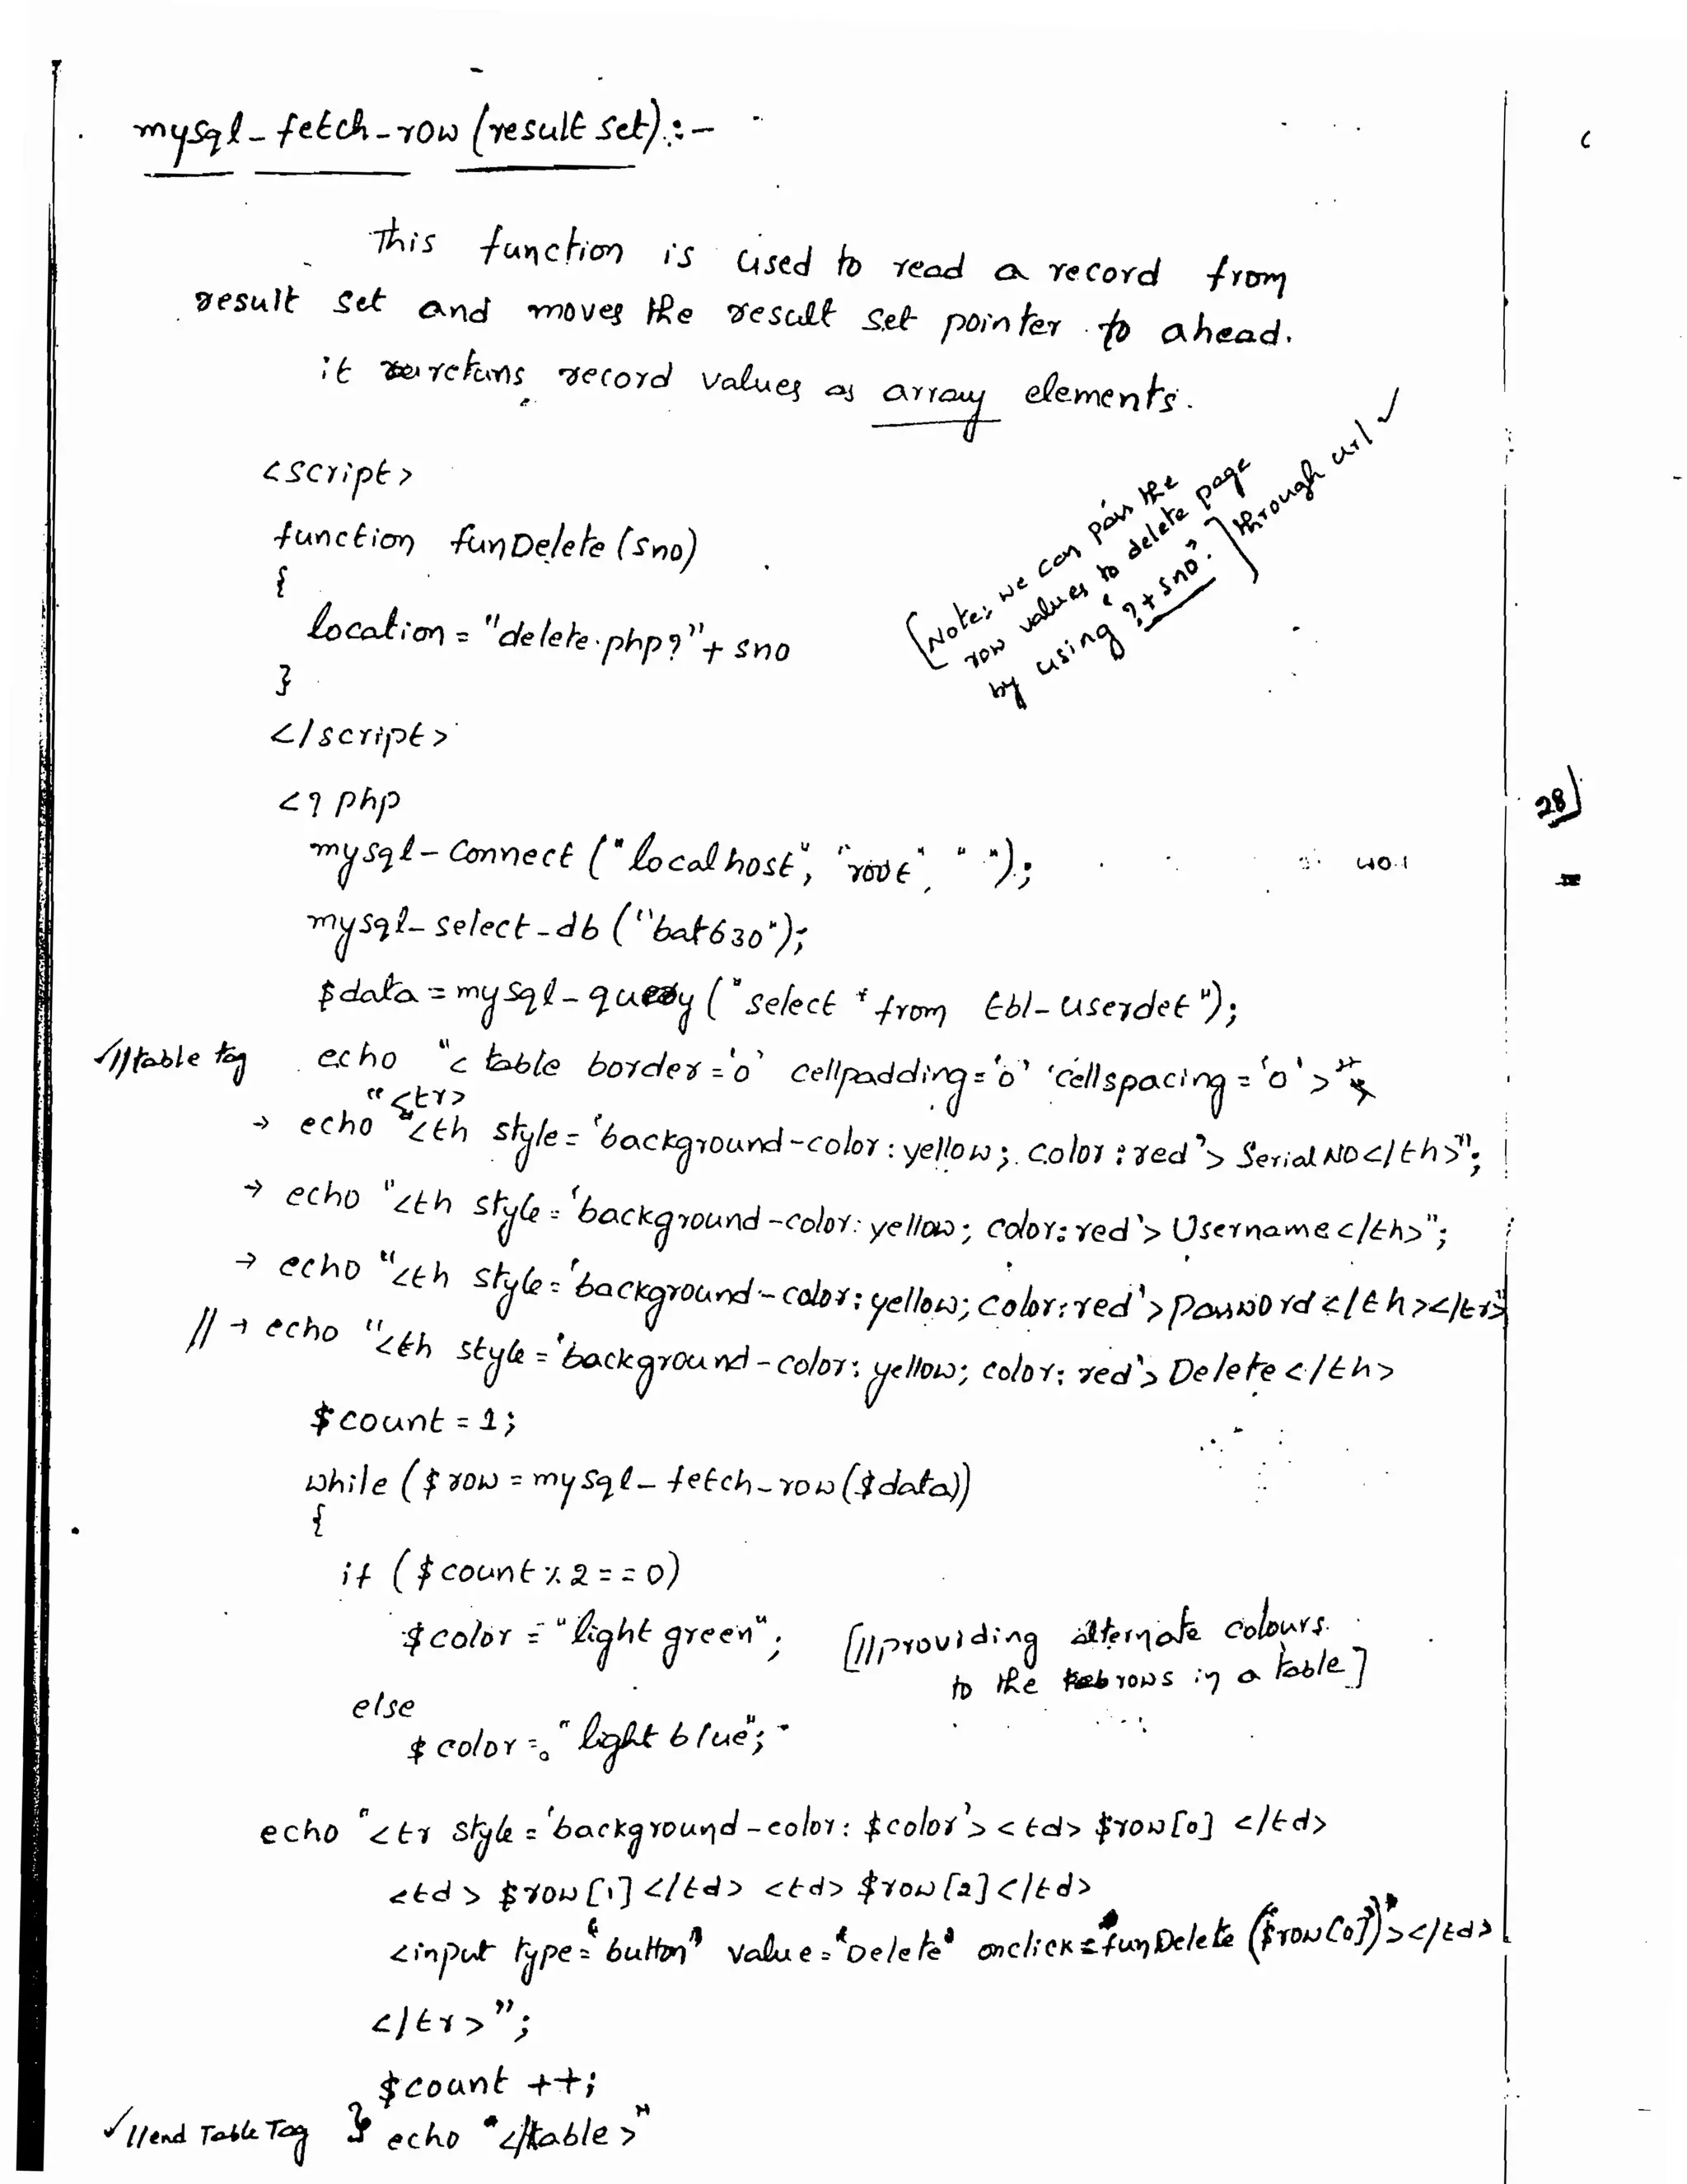 mysql-fetch-row (result set):-
This function is used to read a record from
result set and moves the result set pointer to ahead.
it returns record values as array elements.
<script>
function funDelete (sno)
{
location = "delete.php?"+ sno
}
</script>
[Note: we can pass the
row values to delete page
by using '?+sno'.] through url ✓
<? php
mysql-connect ("localhost", "root", " ");
mysql-select-db ("bat630");
$data = mysql-query ("select * from tbl-userdet");
✓//table tag echo "< table border='0' cellpadding='0' 'cellspacing='0'>"
"<tr>
→ echo "<th style='background-color: yellow; color: red'> Serial NO</th>";
→ echo "<th style='background-color: yellow; color: red'> Username</th>";
→ echo "<th style='background-color: yellow; color: red'> password </th></tr>"
// → echo "<th style='background-color: yellow; color: red'> Delete </th>
$count = 1;
while ($row = mysql-fetch-row($data))
{
if ($count % 2 == 0)
$color = "light green"; [//providing alternate colours
to the rows in a table]
else
$color = "light blue";
echo "<tr style='background-color: $color'> <td> $row[0] </td>
<td> $row[1] </td> <td> $row[2] </td>
<input type='button' value='Delete' onclick=funDelete ('$row[0]')"></td>
</tr>";
$count ++;
✓//end Table Tag } echo "</table>"
28)